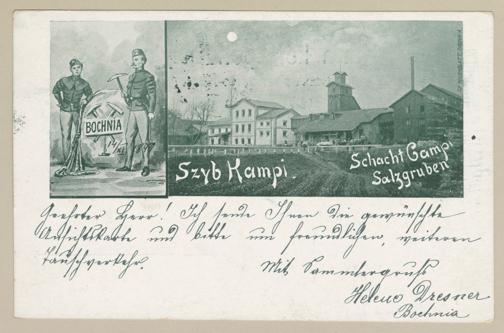 BOCHNIA
Szyb Kampi.
Schacht Campi
Salzgruben
Geehrter Herr! Ich sende Ihnen die gewünschte
Ansichtskarte und bitte um freundlichen, weiteren
Tauschverkehr.
Mit Sammlergruß
Helene Dresner
Bochnia